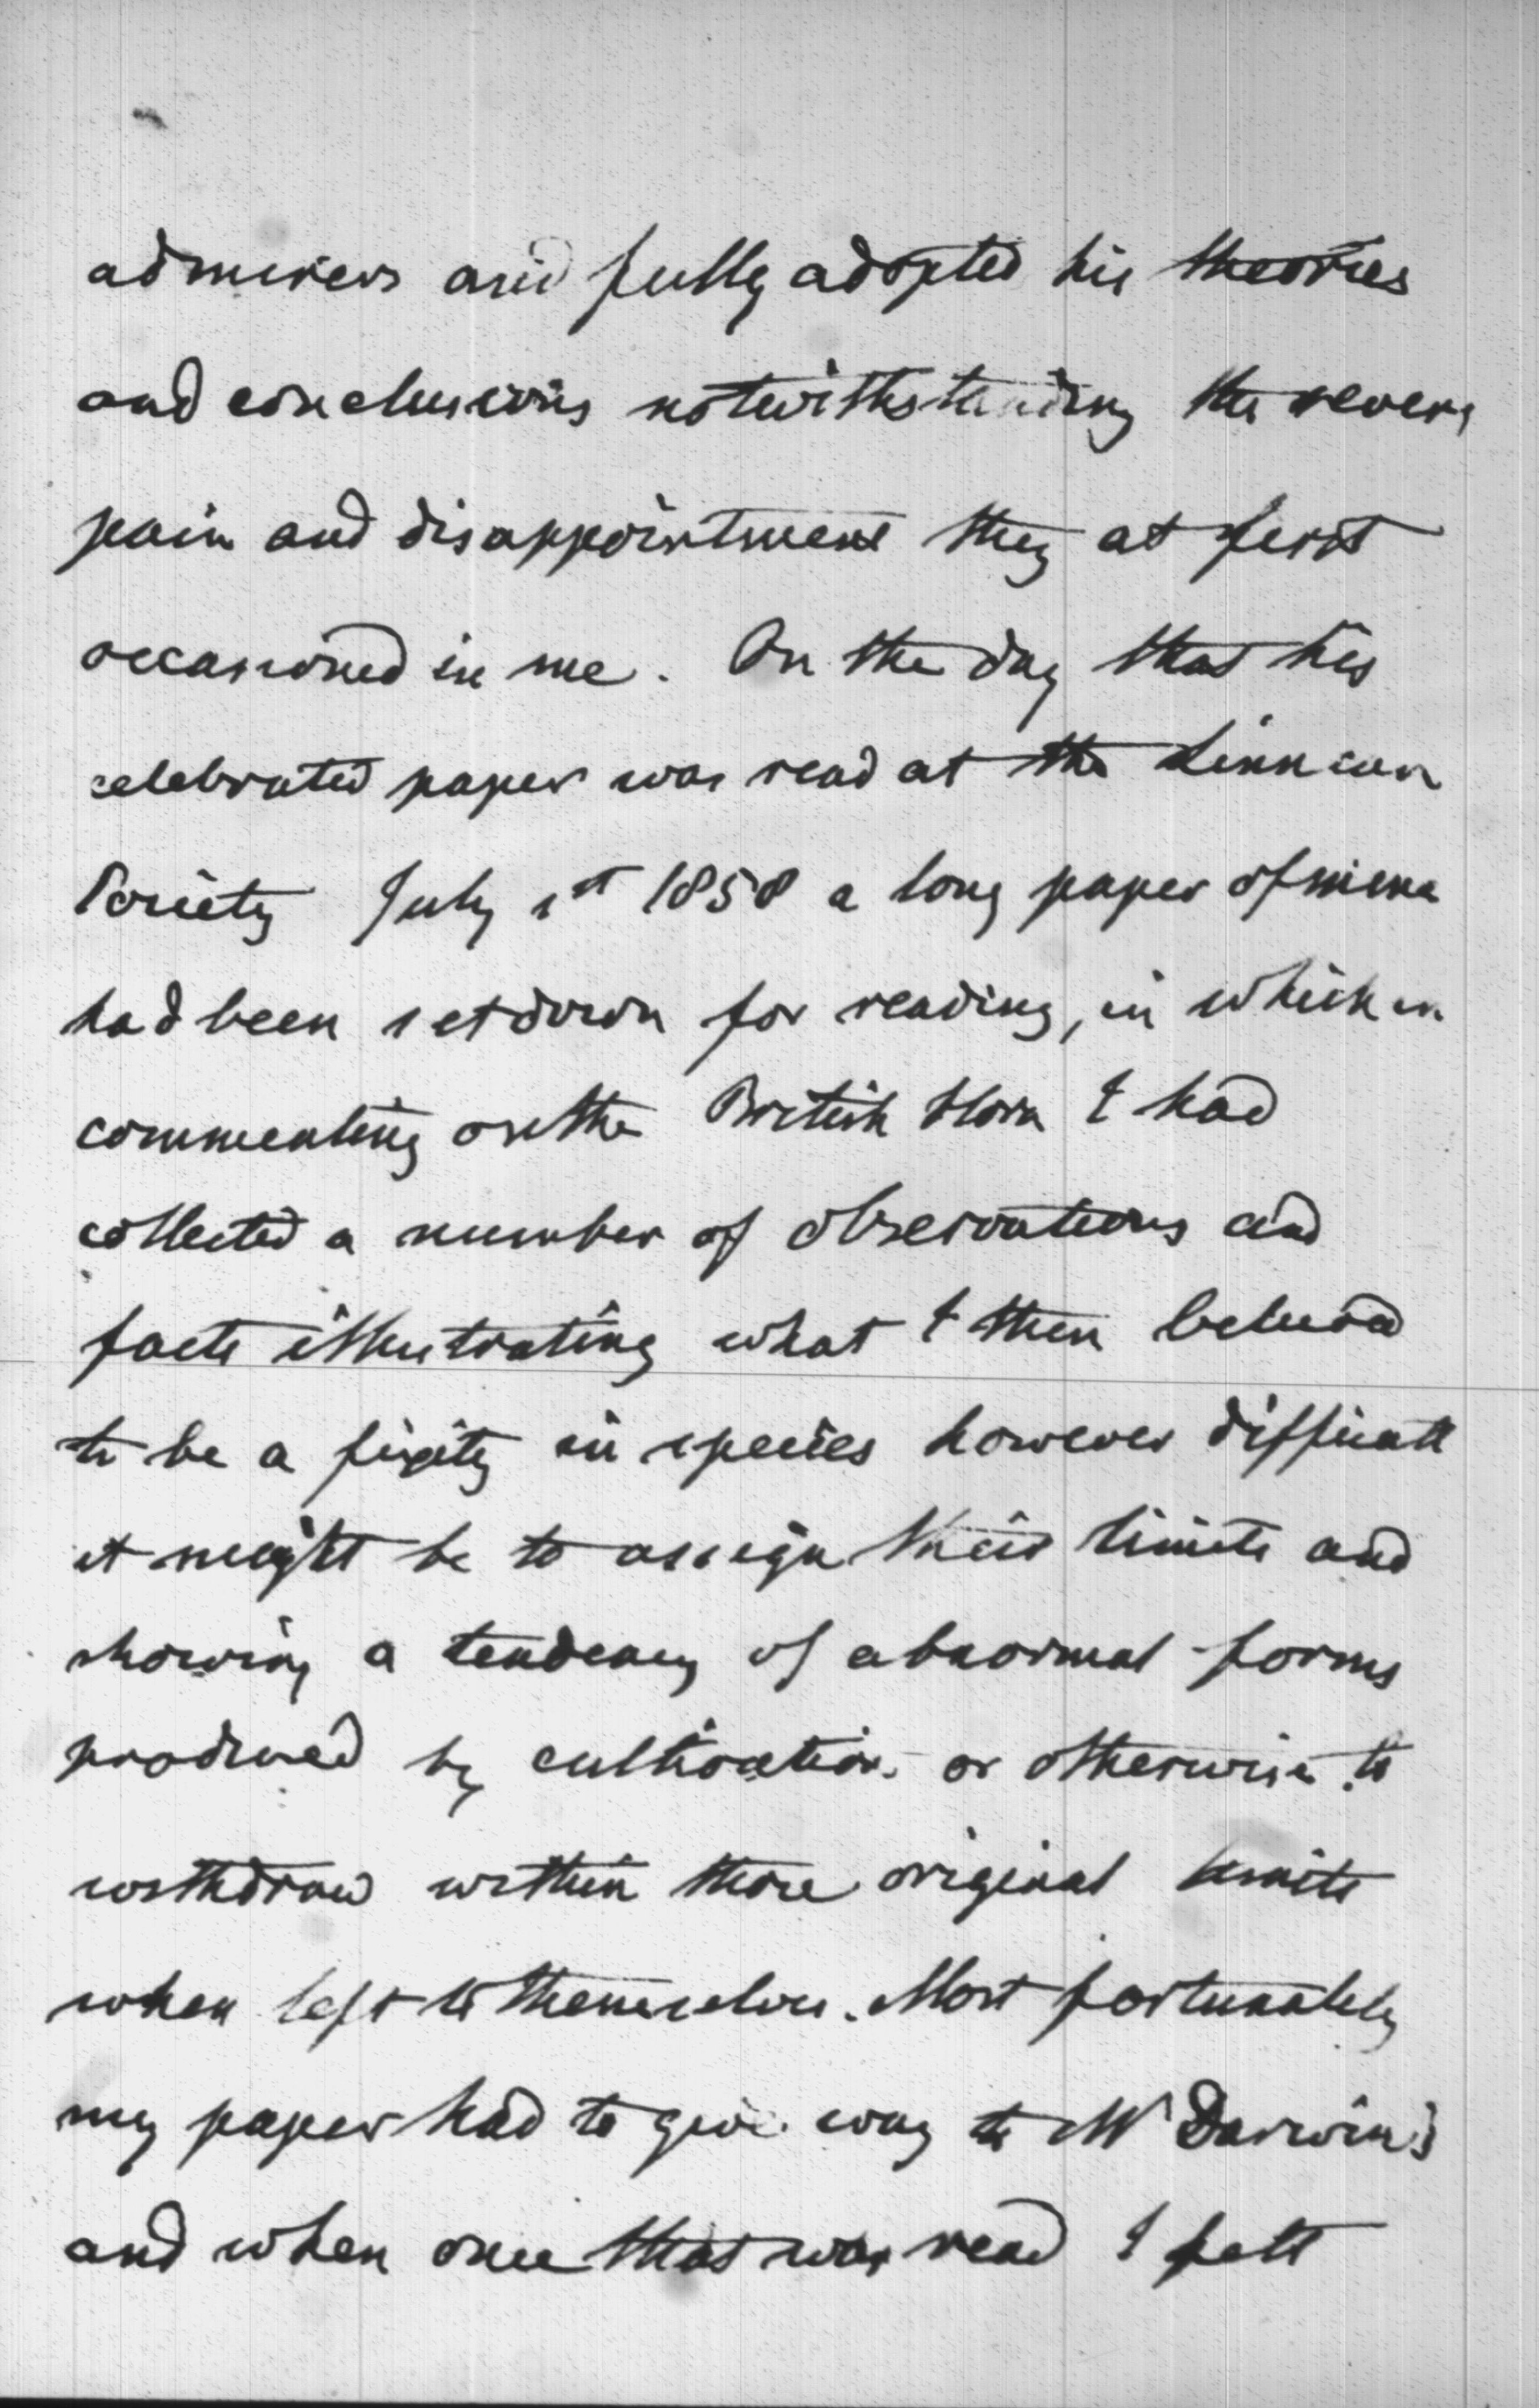 admirers and fully adopted his theories
and conclusions notwithstanding the severe
pain and disappointment they at first
occasioned in me. On the day that his
celebrated paper was read at the Linnean
Society July 1st 1858 a long paper of mine
had been set down for reading, in which in
commenting on the British Flora I had
collected a number of observations and
facts illustrating what I then believed
to be a fixity in species however difficult
it might be to assign their limits and
showing a tendency of abnormal forms
produced by cultivation or otherwise to
withdraw within those original limits
when left to themselves. Most fortunately
my paper had to give way to Mr Darwin's
and when once that was read I felt